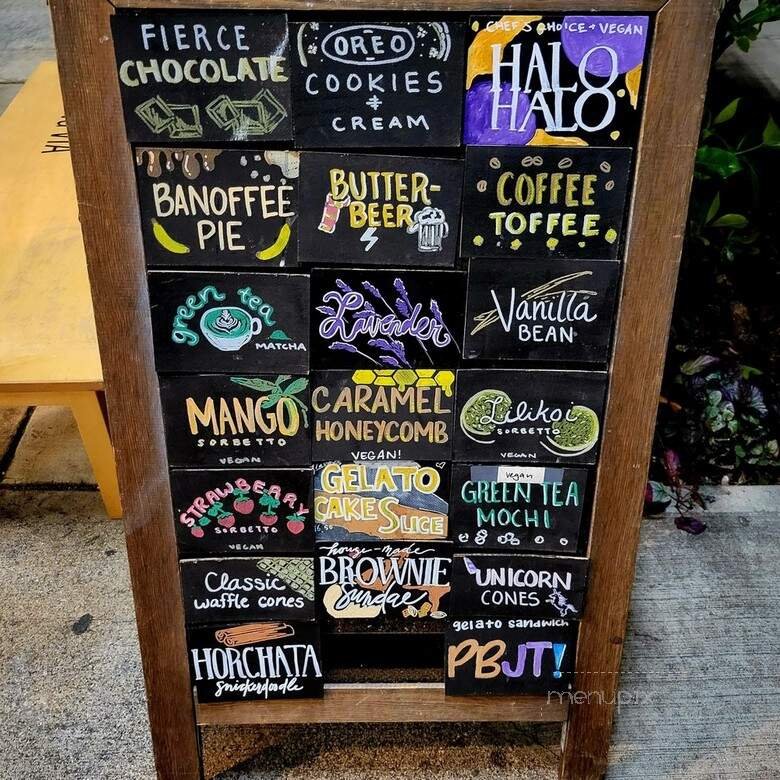 FIERCE
CHOCOLATE
OREO
COOKIES
&
CREAM
CHEF'S CHOICE + VEGAN
HALO
HALO
BANOFFEE
PIE
BUTTER-
BEER
COFFEE
TOFFEE
green tea
MATCHA
Lavender
Vanilla
BEAN
MANGO
SORBETTO
VEGAN
CARAMEL
HONEYCOMB
VEGAN!
Lilikoi
SORBETTO
VEGAN
STRAWBERRY
SORBETTO
VEGAN
GELATO
CAKE SLICE
vegan
GREEN TEA
MOCHI
Classic
waffle cones
house-made
BROWNIE
Sundae
UNICORN
CONES
HORCHATA
snickerdoodle
gelato sandwich
PBJT!